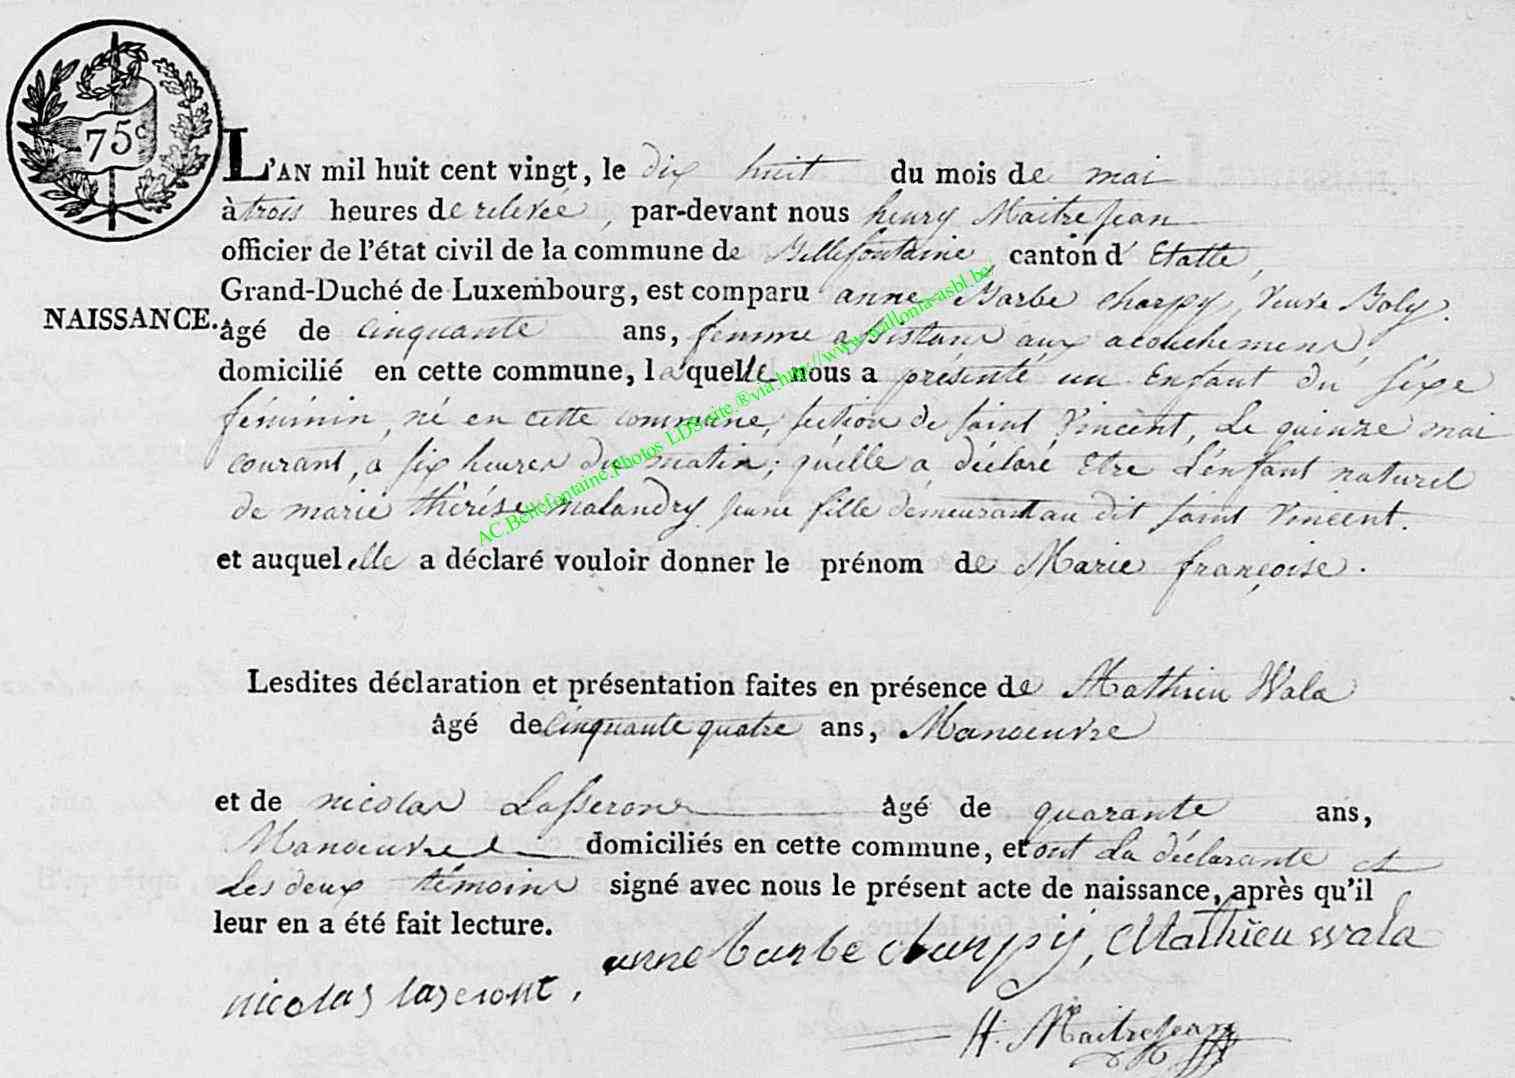 75c
L'AN mil huit cent vingt, le dix huit du mois de mai
à trois heures de relevée, par-devant nous henry Maitrejean
officier de l'état civil de la commune de Bellefontaine, canton d'Etalle,
Grand-Duché de Luxembourg, est comparu anne Barbe charpy, Veuve Boly.
NAISSANCE.
âgé de cinquante ans, femme assistans aux acouchemens,
domicilié en cette commune, laquelle nous a présenté un Enfant du séxe
féminin, né en cette commune, section de saint Vincent, le quinze mai
courant, à six heures du matin; qu'elle a déclaré Etre L'enfant naturel
de marie thérése malandry jeune fille demeurant au dit saint Vincent.
et auquel elle a déclaré vouloir donner le prénom de Marie françoise.
AC.Bellefontaine.Photos LDS site ®via http://www.wallonia-asbl.be/
Lesdites déclaration et présentation faites en présence de Mathieu Wala
âgé de cinquante quatre ans, Manœuvre
et de nicolas Lasseront âgé de quarante ans,
Manœuvre domiciliés en cette commune, et ont La déclarante et
Les deux témoins signé avec nous le présent acte de naissance, après qu'il
leur en a été fait lecture.
anne barbe charpy, Mathieu wala
nicolas laseront,
H. Maitrejean